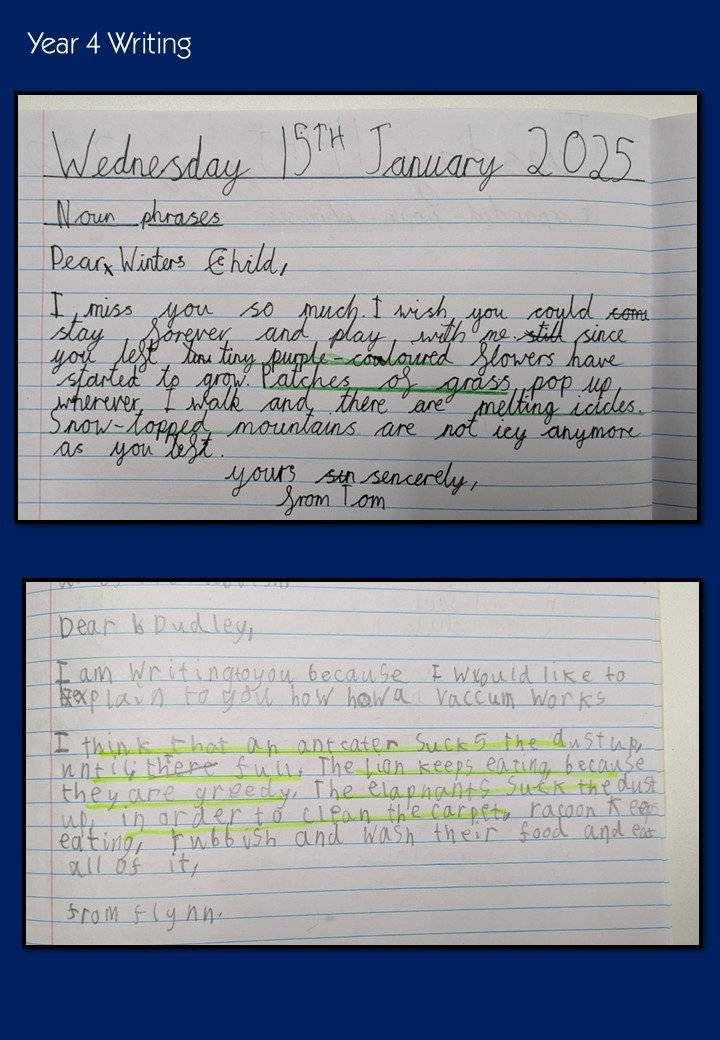 Year 4 Writing
Wednesday 15TH January 2025
Noun phrases
Dear Winters Child,
I miss you so much. I wish you could com
stay forever and play with me still since
you left tiny purple-coloured flowers have
started to grow. Patches of grass pop up
wherever I walk and there are melting icicles.
Snow-topped mountains are not icy anymore
as you left.
yours sin sencerely,
from Tom
Dear Dudley,
I am writing to you because I would like to
explain to you how how a vaccum works
I think that an anteater sucks the dust up,
until, there full. The Lion keeps eating, because
they are greedy, The elaphants suck the dust
up, in order to clean the carpet, racoon keeps
eating, rubbish and wash their food and eat
all of it,
from flynn.